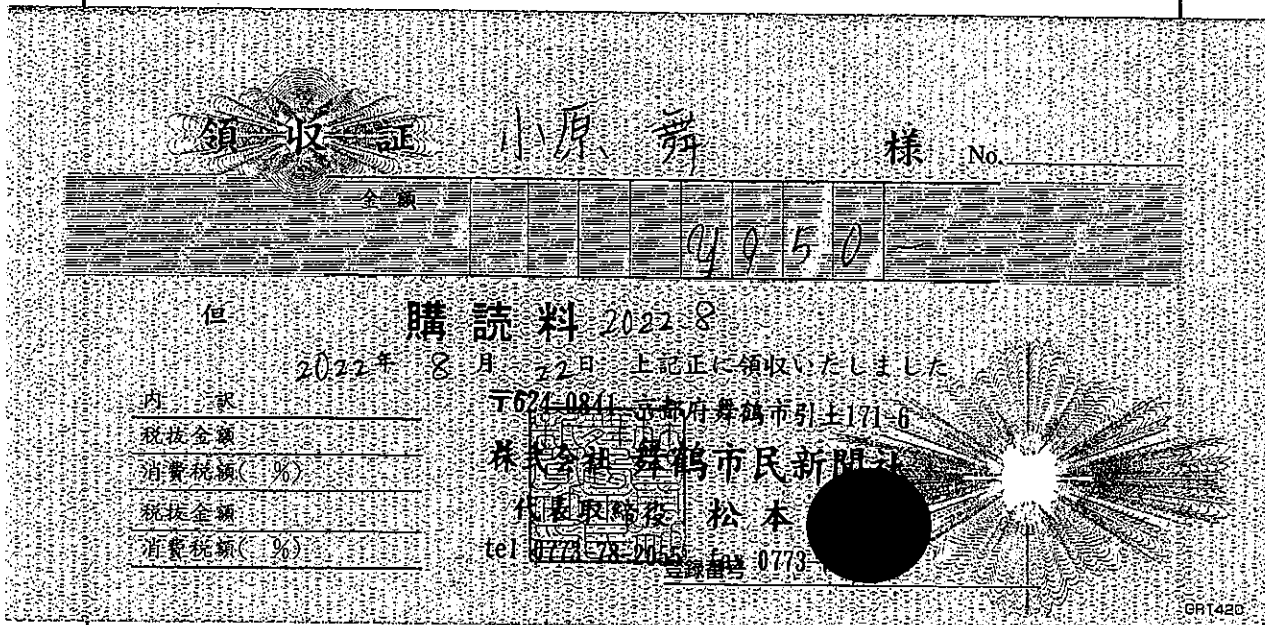 領収証 小原 舞 様 No.
金額 ¥950-
但 購読料 2022 8
2022年 8月 22日 上記正に領収いたしました
内 訳
税抜金額
消費税額( %)
税抜金額
消費税額( %)
〒624-0841 京都府舞鶴市引土171-6
株式会社 舞鶴市民新聞社
代表取締役 松本
tel 0773-78-2055 fax 0773-
登録番号
GR1420